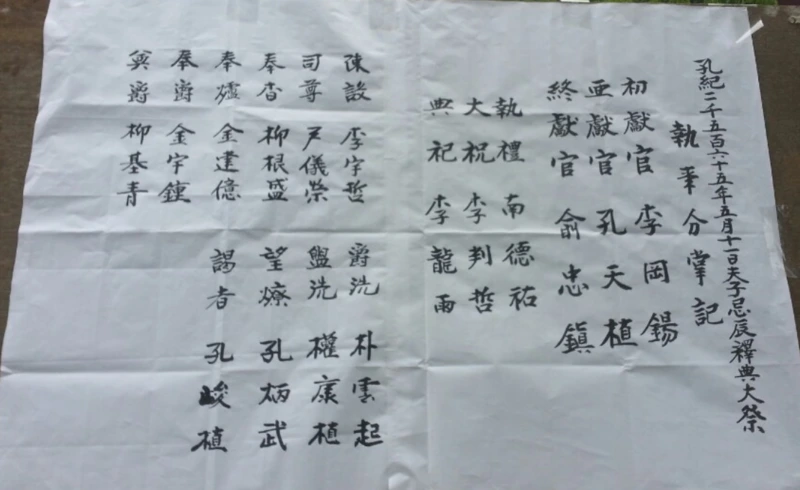 孔紀二千五百六十五年五月十一日夫子忌辰釋典大祭
執事分掌記
初獻官 李岡錫
亞獻官 孔天植
終獻官 俞忠鎭
執禮 南德祐
大祝 李判哲
典祀 李龍雨
陳設 李宇哲
司尊 尹儀榮
奉香 柳根盛
奉爐 金達億
奉爵 金宇鍾
奠爵 柳基青
爵洗 朴雲起
盥洗 權康植
望燎 孔柄武
謁者 孔峻植